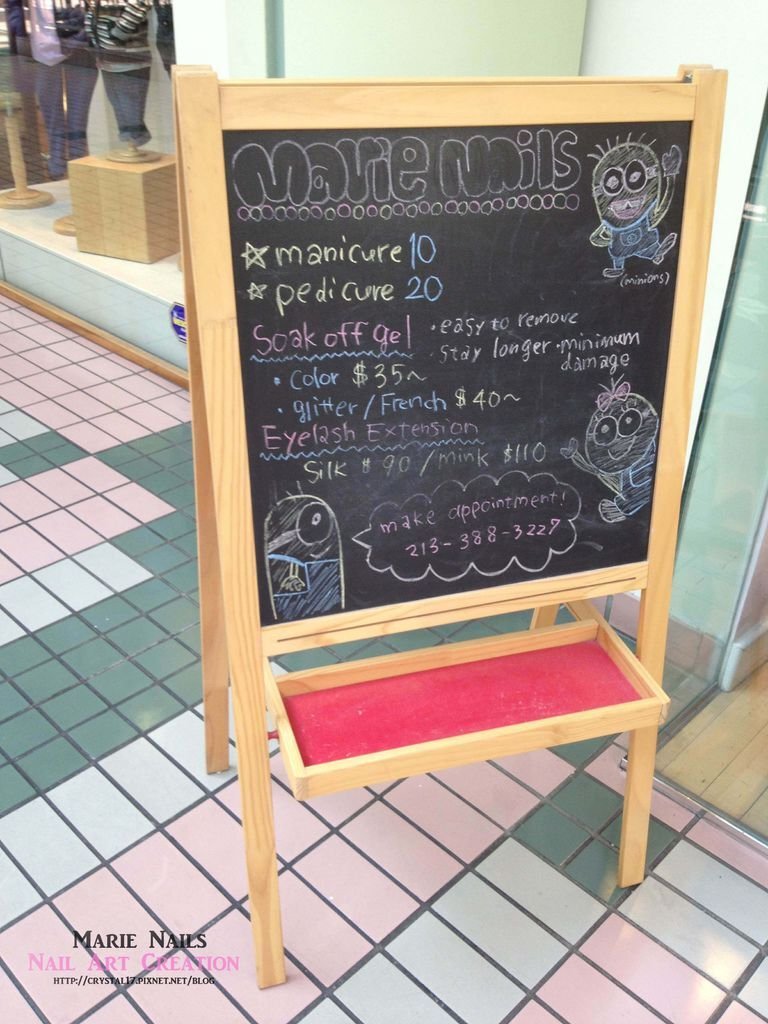 Marie Nails
manicure 10
pedicure 20
(minions)
Soak off gel
· easy to remove
· stay longer · minimum damage
· Color $35~
· glitter/French $40~
Eyelash Extension
Silk $90/mink $110
make appointment!
213-388-3227
Marie Nails
Nail Art Creation
http://crystal17.pixnet.net/blog